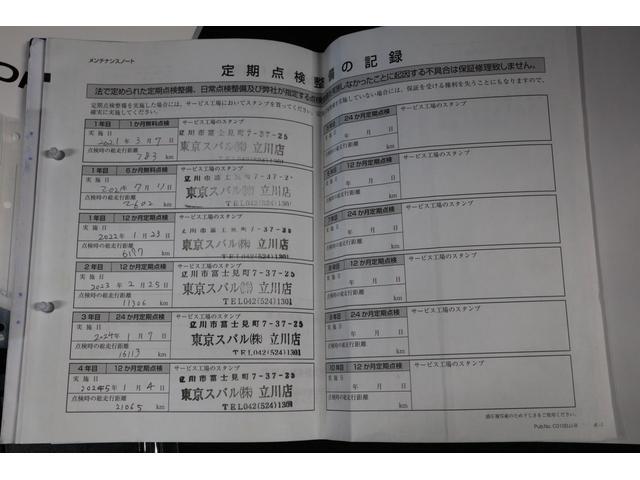 メンテナンスノート
定期点検整備の記録
法で定められた定期点検整備、日常点検整備及び弊社が指定する点検
しなかったことに起因する不具合は保証修理致しません。
定期点検整備を実施した場合には、サービス工場においてスタンプを買ってください
確実に実施してください。
を実施していない場合には、保証を受ける権利を失うことにもなりますので、
1年目 1か月無料点検 サービス工場のスタンプ
実施日
2021年3月7日
点検時の総走行距離
783 km
立川市富士見町7-37-25
東京スバル㈱ 立川店
1年目 6か月無料点検 サービス工場のスタンプ
実施日
2021年7月11日
点検時の総走行距離
2602 km
立川市富士見町7-37-25
東京スバル㈱ 立川店
TEL042(524)1301
1年目 12か月定期点検 サービス工場のスタンプ
実施日
2022年1月23日
点検時の総走行距離
km
立川市富士見町7-37-25
東京スバル㈱ 立川店
2年目 12か月定期点検 サービス工場のスタンプ
実施日
2023年2月25日
点検時の総走行距離
11306 km
立川市富士見町7-37-25
東京スバル㈱ 立川店
TEL042(524)1301
3年目 24か月定期点検 サービス工場のスタンプ
実施日
2024年1月7日
点検時の総走行距離
16113 km
立川市富士見町7-37-25
東京スバル㈱ 立川店
TEL042(524)1301
4年目 12か月定期点検 サービス工場のスタンプ
実施日
年1月4日
点検時の総走行距離
21065 km
立川市富士見町7-37-25
東京スバル㈱ 立川店
TEL042(524)1301
24か月定期点検 サービス工場のスタンプ
年 月 日
km
12か月定期点検 サービス工場のスタンプ
年 月 日
点検時の総走行距離
km
24か月定期点検 サービス工場のスタンプ
実施日
年 月 日
点検時の総走行距離
km
12か月定期点検 サービス工場のスタンプ
実施日
年 月 日
点検時の総走行距離
km
24か月定期点検 サービス工場のスタンプ
実施日
年 月 日
点検時の総走行距離
km
10年目 12か月定期点検 サービス工場のスタンプ
実施日
年 月 日
点検時の総走行距離
km